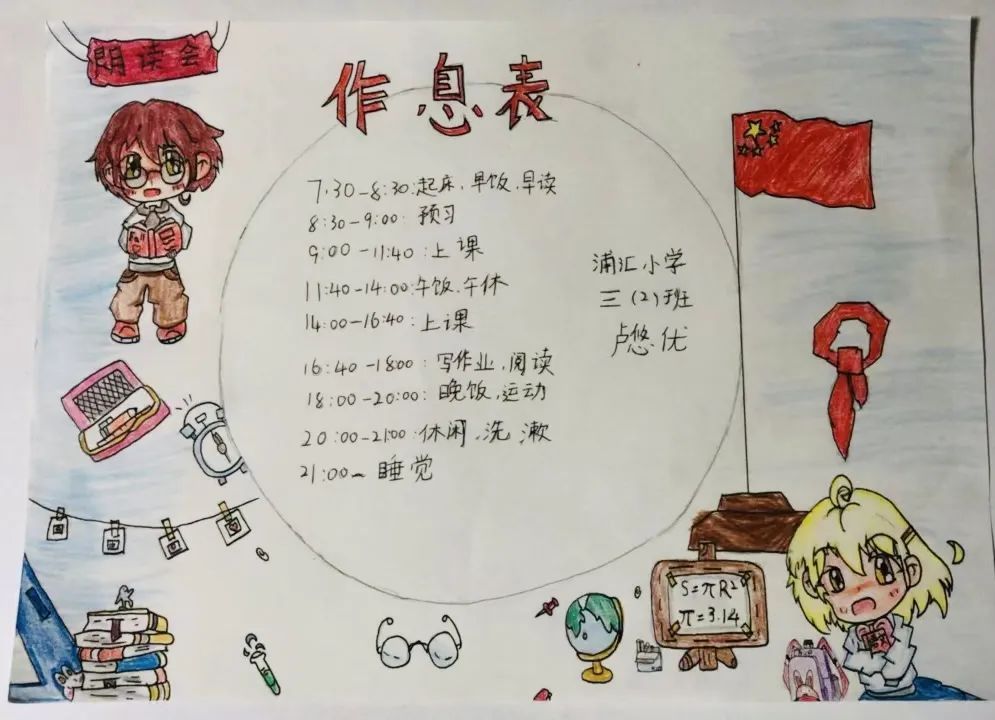 朗读会
作息表
7:30-8:30:起床、早饭、早读
8:30-9:00:预习
9:00-11:40:上课
11:40-14:00:午饭、午休
14:00-16:40:上课
16:40-18:00:写作业、阅读
18:00-20:00:晚饭、运动
20:00-21:00:休闲、洗漱
21:00~睡觉
浦汇小学
三(2)班
卢悠优
S=πR²
π=3.14